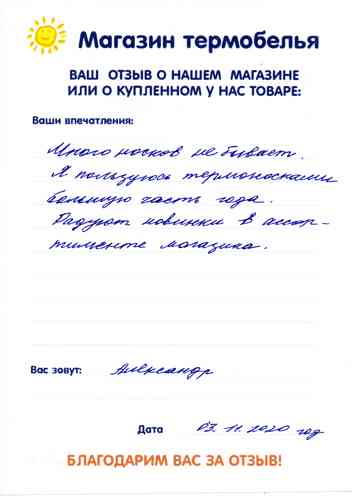 Магазин термобелья
ВАШ ОТЗЫВ О НАШЕМ МАГАЗИНЕ
ИЛИ О КУПЛЕННОМ У НАС ТОВАРЕ:
Ваши впечатления:
Много носков не бывает.
Я пользуюсь термоносками
большую часть года.
Радуют новинки в ассор-
тименте магазина.
Вас зовут: Александр
Дата 03.11.2020 год
БЛАГОДАРИМ ВАС ЗА ОТЗЫВ!